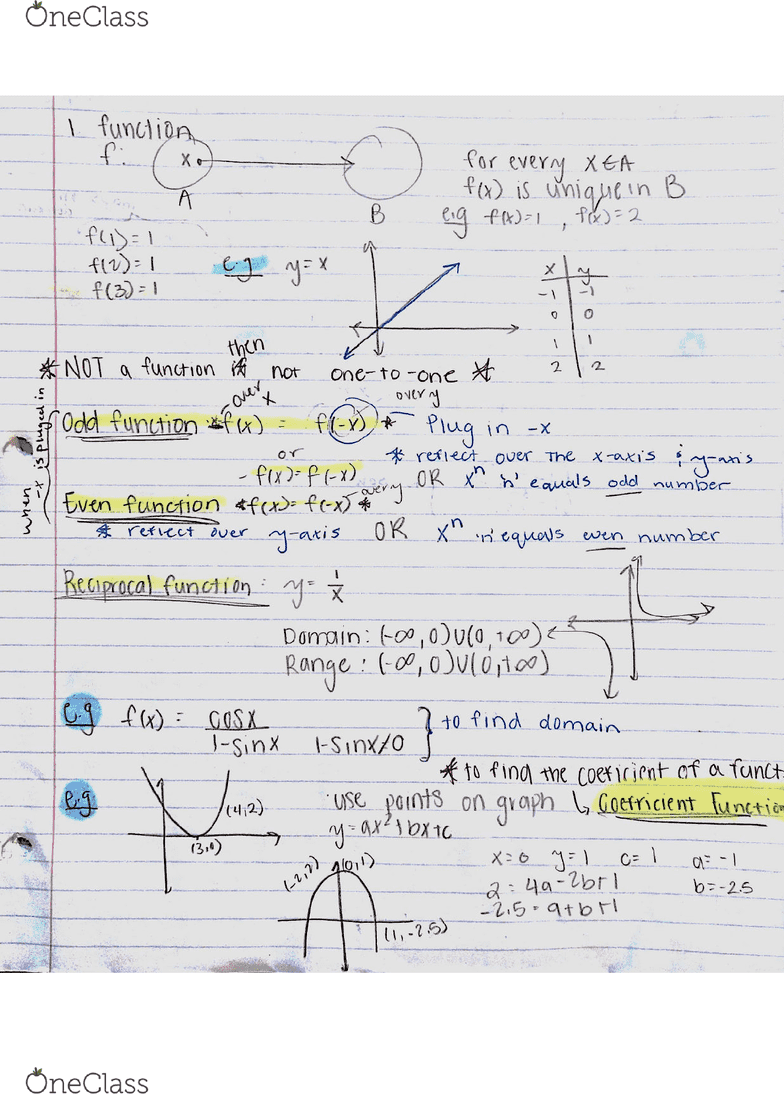 OneClass
1 function
f: x
A
B
for every x∈A
f(x) is unique in B
e.g f(x)=1 , f(x)=2
f(1)=1
f(2)=1
f(3)=1
e.g y=x
x y
-1 -1
0 0
1 1
2 2
then
* NOT a function if not one-to-one *
over x
over y
Odd function *-f(x) = f(-x) * Plug in -x
* reflect over the x-axis & y-axis
or
-f(x)=f(-x)
OR xⁿ 'n' equals odd number
when -x is pluged in
Even function *f(x)=f(-x)* over y
* reflect over y-axis OR xⁿ 'n' equals even number
Reciprocal function: y= 1/x
Domain: (-∞,0)U(0,+∞)
Range: (-∞,0)U(0,+∞)
e.g f(x) = cosx / 1-sinx 1-sinx≠0 } to find domain
* to find the coeficient of a funct
e.g
use points on graph ↳ Coefficient Function
y=ax²+bx+c
(4,2)
(3,0)
x=0 y=1 c=1 a=-1
2=4a-2b+1 b=-2.5
-2.5=a+b+1
(-2,2) (0,1)
(1,-2.5)
OneClass